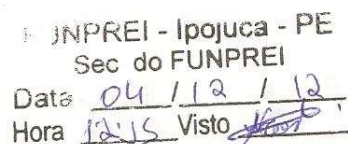 FUNPREI - Ipojuca - PE
Sec do FUNPREI
Data 04 / 12 / 12
Hora 12:15 Visto